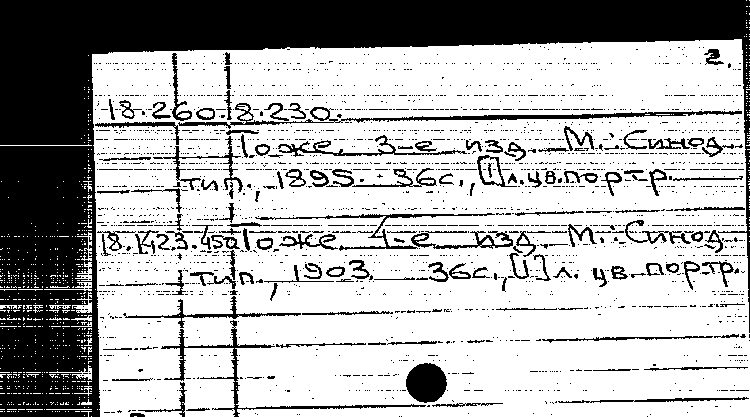 2.
18.260.8.230.
То же. 3-е изд. М.: Синод.
тип., 1895. 36с., [1]л.цв.портр.
18.423.450 То же. 4-е изд. М.: Синод.
тип., 1903. 36с., [1] л. цв. портр.